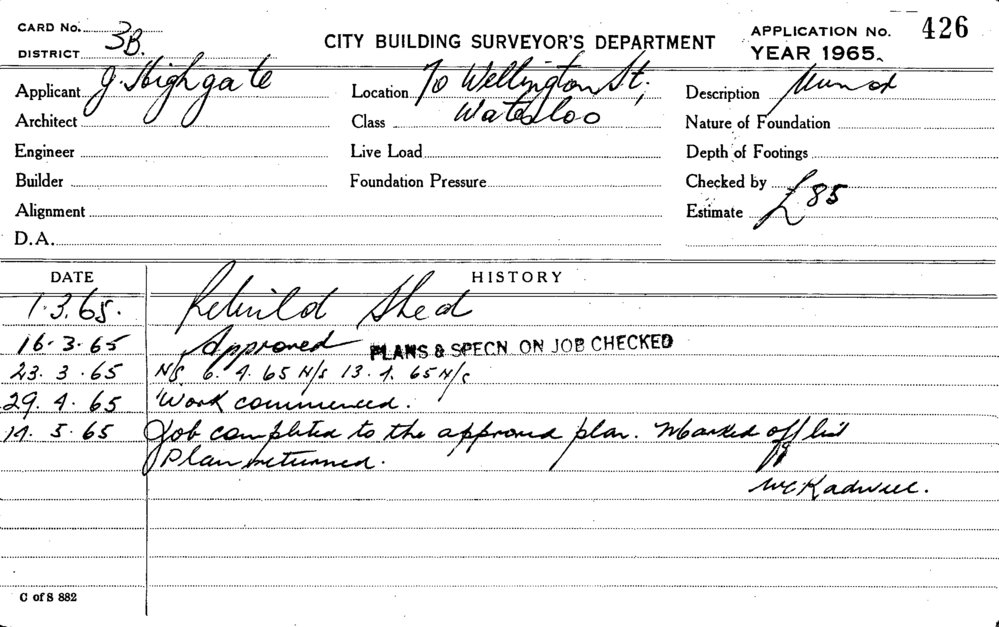 CARD No. 3B.
DISTRICT
CITY BUILDING SURVEYOR'S DEPARTMENT
APPLICATION No. 426
YEAR 1965.
Applicant J. Highgate
Location 70 Wellington St,
Description
Architect
Class Waterloo
Nature of Foundation
Engineer
Live Load
Depth of Footings
Builder
Foundation Pressure
Checked by
Alignment
Estimate £85
D.A.
DATE HISTORY
1.3.65. Rebuild Shed
16.3.65 Approved PLANS & SPECN ON JOB CHECKED
23.3.65 N/S 6.4.65 N/S 13.4.65 N/S
29.4.65 Work commenced.
14.5.65 Job completed to the approved plan. Marked off list
Plan returned.
C of S 882